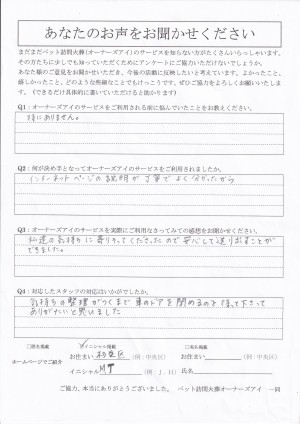 あなたのお声をお聞かせください
まだまだペット訪問火葬(オーナーズアイ)のサービスを知らない方がたくさんいらっしゃいます。
その方たちに少しでも知っていただくためにアンケートにご協力いただけないでしょうか。
あなた様のご意見をお聞かせいただき、今後の活動に反映したいと考えています。よかったこと、
嬉しかったこと、どのような些細なことでもけっこうです。ぜひご協力をよろしくお願いいたしま
す。(できるだけ具体的に書いていただけると助かります。)
Q1:オーナーズアイのサービスをご利用される前に悩んでいたことをお教えください。
特にありません。
Q2:何が決め手となってオーナーズアイのサービスをご利用されましたか。
インターネットページの説明が丁寧でよく分かったから
Q3:オーナーズアイのサービスを実際にご利用なさってみての感想をお聞かせください。
私達の気持ちに寄りそってくださったので安心して送り出すことが
できました。
Q4:対応したスタッフの対応はいかがでしたか。
気持ちの整理がつくまで車のドアを閉めるのを待って下さって
ありがたいと思いました
□匿名掲載 イニシャル掲載 □実名掲載
ホームページでご紹介 お住まい 杉並区 (例:中央区) お住まい (例:中央区)
イニシャル (例:J.H) 氏名
ご協力、本当にありがとうございました。 ペット訪問火葬オーナーズアイ 一同